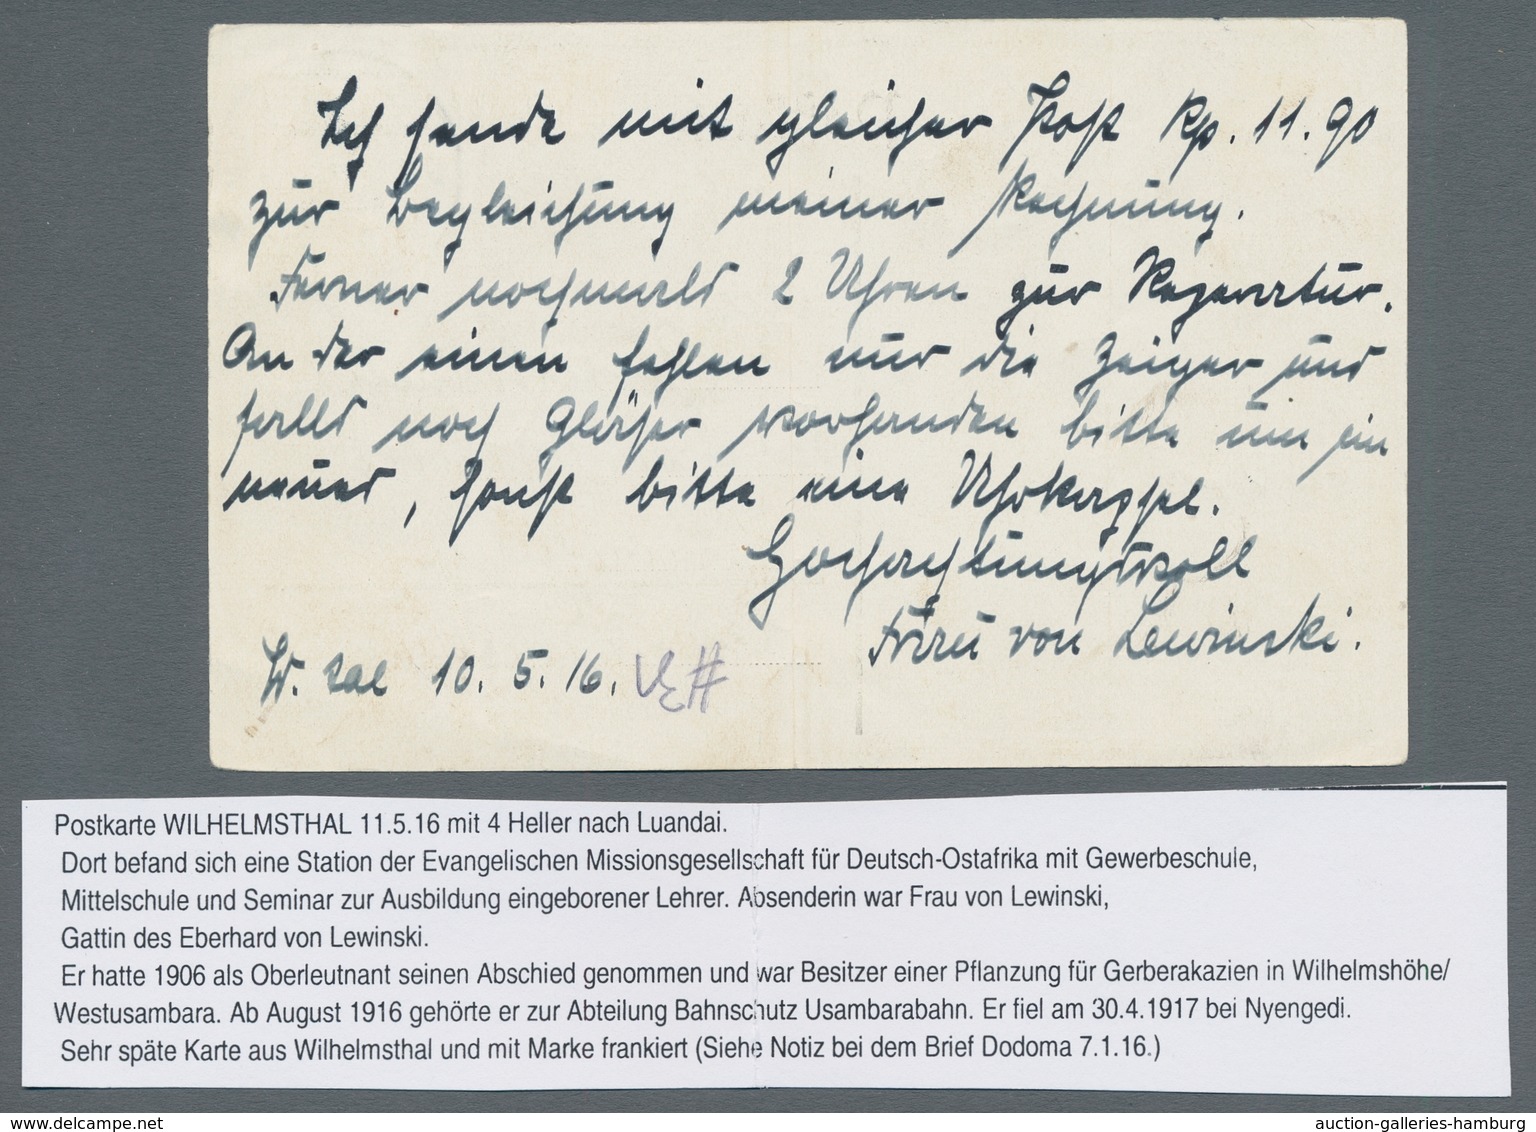 Ich sende mit gleicher Post Rp. 11.90
zur Begleichung meiner Rechnung.
Ferner nochmals 2 Uhren zur Reparatur.
An der einen fehlen nur die Zeiger und
falls noch Gläser vorhanden bitte um ein
neues, sonst bitte eine Uhrkapsel.
Hochachtungsvoll
Frau von Lewinski.
W. tal 10. 5. 16.
Postkarte WILHELMSTHAL 11.5.16 mit 4 Heller nach Luandai.
Dort befand sich eine Station der Evangelischen Missionsgesellschaft für Deutsch-Ostafrika mit Gewerbeschule,
Mittelschule und Seminar zur Ausbildung eingeborener Lehrer. Absenderin war Frau von Lewinski,
Gattin des Eberhard von Lewinski.
Er hatte 1906 als Oberleutnant seinen Abschied genommen und war Besitzer einer Pflanzung für Gerberakazien in Wilhelmshöhe/
Westusambara. Ab August 1916 gehörte er zur Abteilung Bahnschutz Usambarabahn. Er fiel am 30.4.1917 bei Nyengedi.
Sehr späte Karte aus Wilhelmsthal und mit Marke frankiert (Siehe Notiz bei dem Brief Dodoma 7.1.16.)
www.delcampe.net
auction-galleries-hamburg